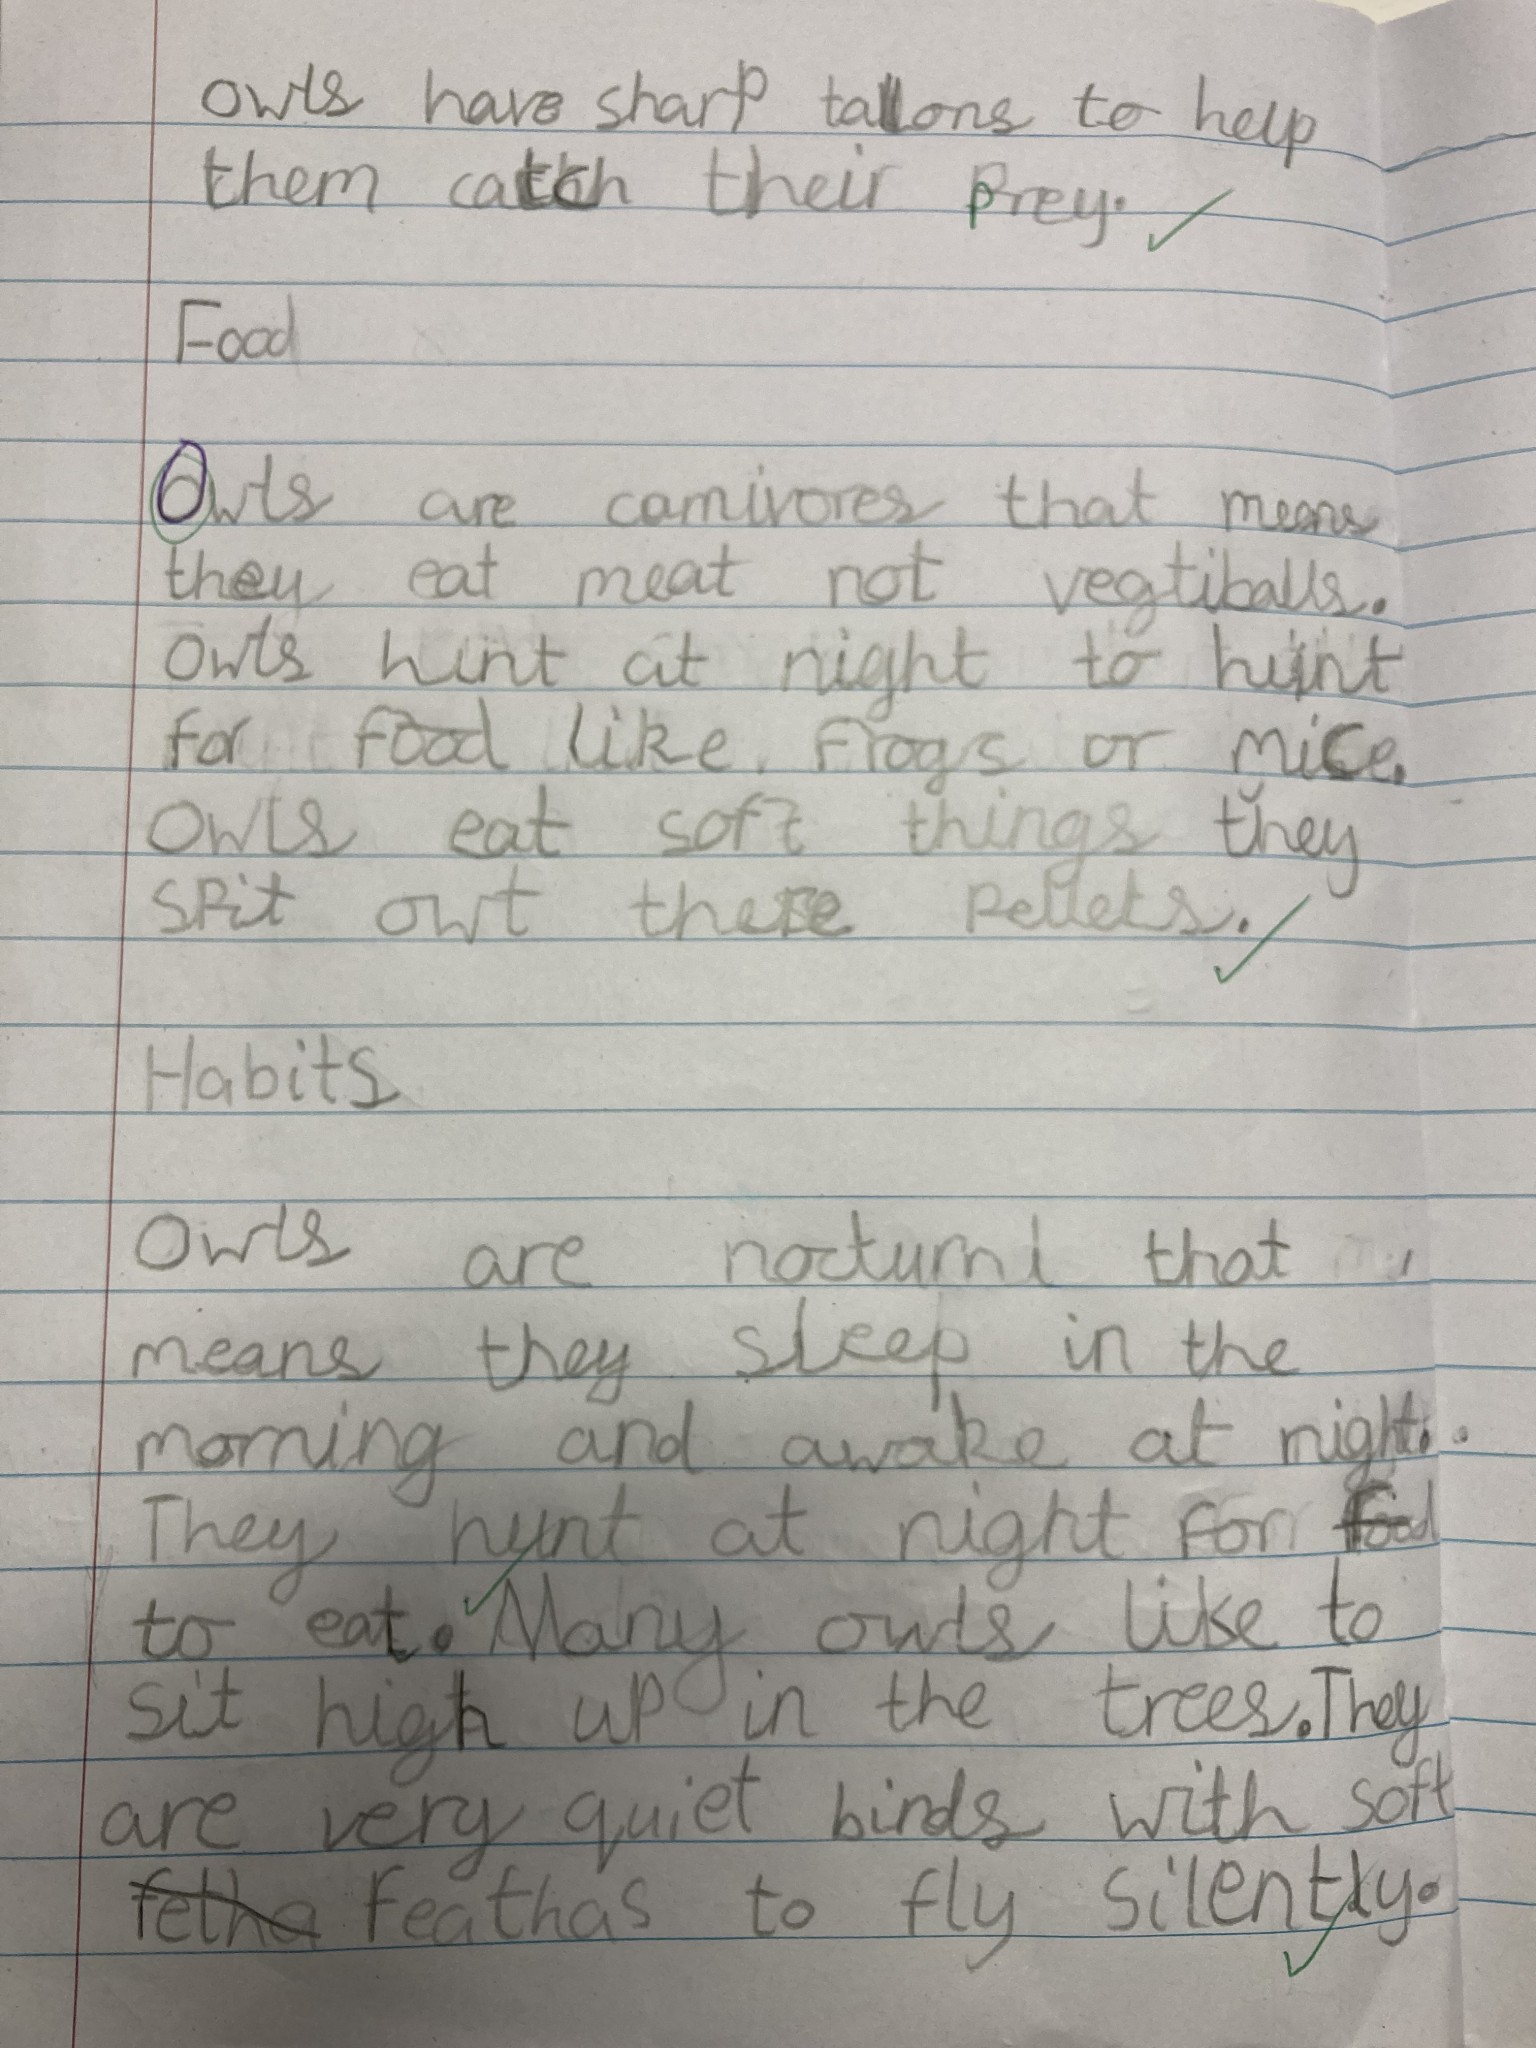 owls have sharp tallons to help
them catch their prey.
Food
Owls are carnivores that means
they eat meat not vegtiballs.
Owls hunt at night to hunt
for food like. Frogs or mice.
Owls eat soft things they
spit owt there pellets.
Habits
Owls are nocturnl that
means they sleep in the
morning and awake at night.
They hunt at night for food
to eat. Many owls like to
sit high up in the trees. They
are very quiet birds with soft
fetha feathas to fly silently.